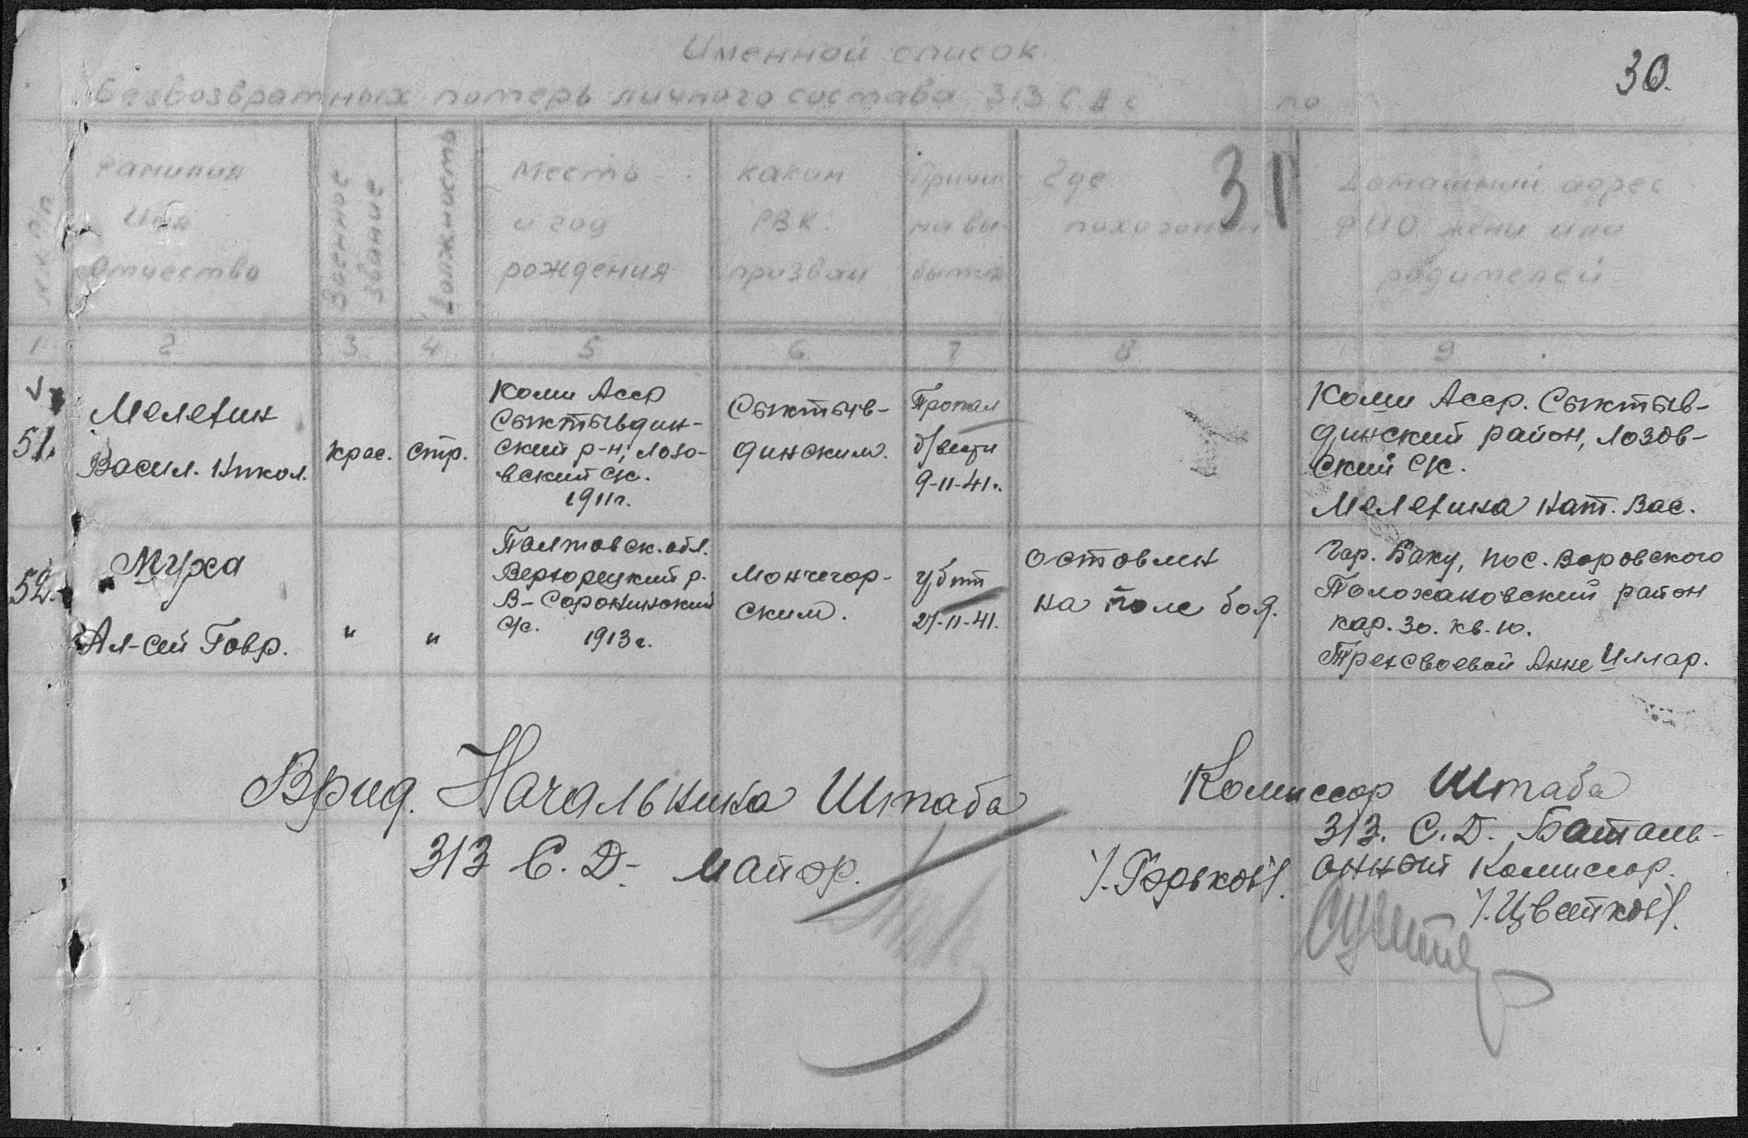 30.
Именной список
безвозвратных потерь личного состава 313 С Д с по
31
№№ пп
Фамилия
Имя
Отчество
Военное
звание
Должность
Место
и год
рождения
каким
РВК.
призван
Причи
на вы-
бытия
Где
похоронен
Домашний адрес
ФИО жены или
родителей
1 2 3 4 5 6 7 8 9
51.
Мелехин
Васил. Никол.
крас.
стр.
Коми Асср
Сыктывдин-
ский р-н; Лозо-
вский с/с.
1911г.
Сыктыв-
динским.
Пропал
б/вести
9-11-41г.
Коми Асср. Сыктыв-
динский район, Лозов-
ский с/с.
Мелехина Нат. Вас.
52.
Муха
Ал-сей Гавр.
"
"
Полтовск. обл.
В-Соронинский
с/с.
1913г.
Мончегор-
ским.
убит
27-11-41.
остовлин
на поле боя.
Гор. Баку, пос. Воровского
район
кар. 30. кв. 10.
Анне Иллар.
Врид. Начальника Штаба
313 С. Д- майор.
/. Горьков/.
Комиссар Штаба
313. С. Д. Баталь-
онный Комиссар.
/. Цветков/.